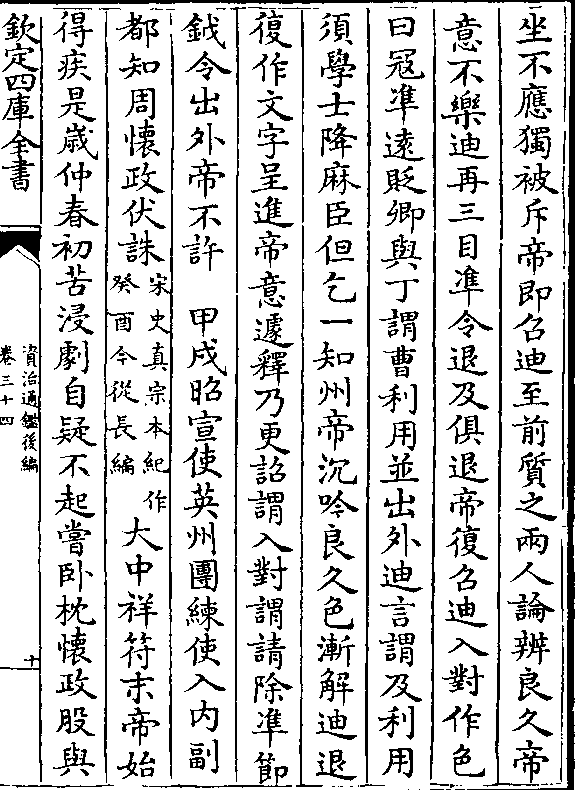 坐不應獨被斥帝即召迪至前質之兩人論辨良久帝
意不樂迪再三目凖令退及俱退帝復召迪入對作色
曰冦凖遠貶卿與丁謂曹利用並出外迪言謂及利用
須學士降麻臣但乞一知州帝沉吟良久色漸解迪退
復作文字呈進帝意遽釋乃更詔謂入對謂請除凖節
鉞令出外帝不許　甲戌昭宣使英州團練使入内副
都知周懷政伏誅宋史真宗本紀作癸酉今從長編大中祥符末帝始
得疾是歳仲春初苦浸劇自疑不起嘗卧枕懷政股與
欽定四庫全書
資治通鑑後編
卷三十四
十